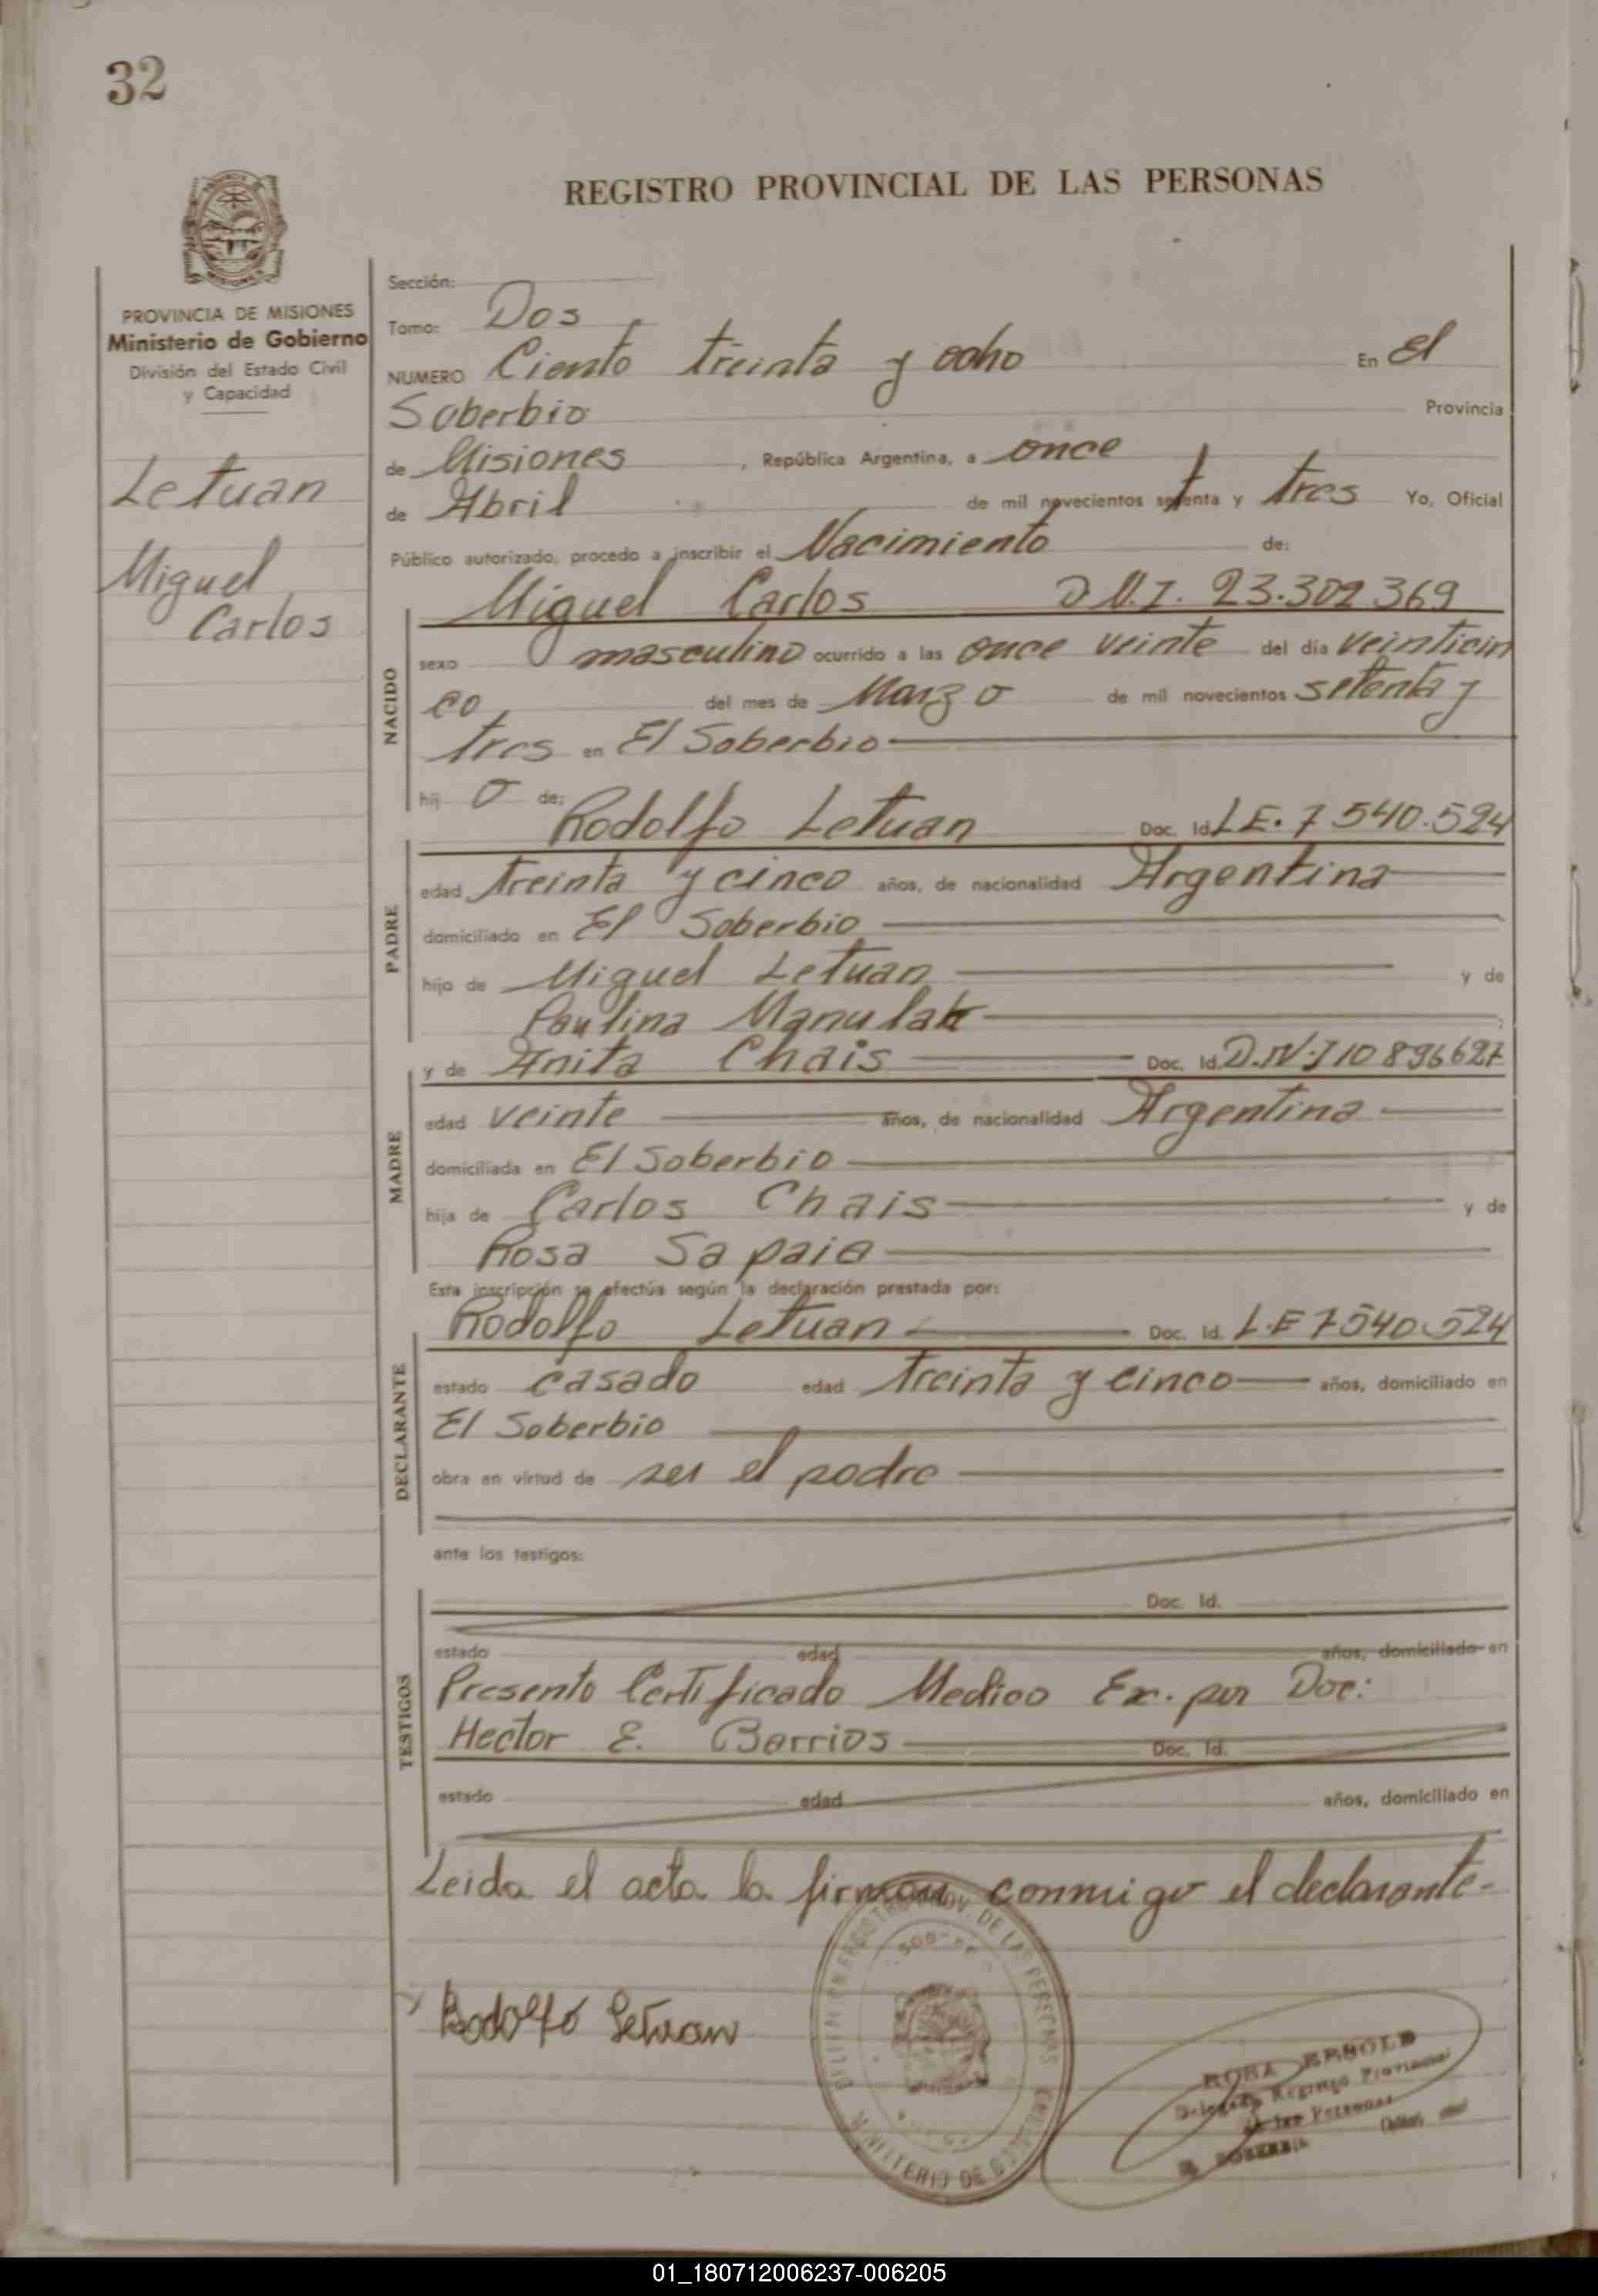 32
REGISTRO PROVINCIAL DE LAS PERSONAS
PROVINCIA DE MISIONES
Ministerio de Gobierno
División del Estado Civil
y Capacidad
Letuan
Miguel
Carlos
Sección:
Tomo: Dos
NUMERO Ciento treinta y ocho En El
Soberbio Provincia
de Misiones , República Argentina, a once
de Abril de mil novecientos setenta y tres Yo, Oficial
Público autorizado, procedo a inscribir el Nacimiento de:
Miguel Carlos D N.I. 23.302 369
NACIDO
sexo masculino ocurrido a las once veinte del día veinticin
co del mes de Marzo de mil novecientos setenta y
tres en El Soberbio
hij o de:
Rodolfo Letuan Doc. Id. L E. 7 540.524
PADRE
edad treinta y cinco años, de nacionalidad Argentina
domiciliado en El Soberbio
hijo de Miguel Letuan y de
Paulina
y de Anita Chais Doc. Id. D.N.I 10 896627
MADRE
edad veinte años, de nacionalidad Argentina
domiciliada en El Soberbio
hija de Carlos Chais y de
Rosa
Esta inscripción se efectúa según la declaración prestada por:
Rodolfo Letuan Doc. Id. L.E 7540.524
DECLARANTE
estado casado edad treinta y cinco años, domiciliado en
El Soberbio
obra en virtud de ser el padre
ante los testigos:
Doc. Id.
TESTIGOS
estado edad años, domiciliado en
Presento Certificado Medico Ex. por Doc:
Hector E. Barrios Doc. Id.
estado edad años, domiciliado en
Leida el acta la firman conmigo el declarante-
Rodolfo Letuan
DE LAS PERSONAS
MINISTERIO DE
Delegada Registro Provincial
de las Personas
01_180712006237-006205